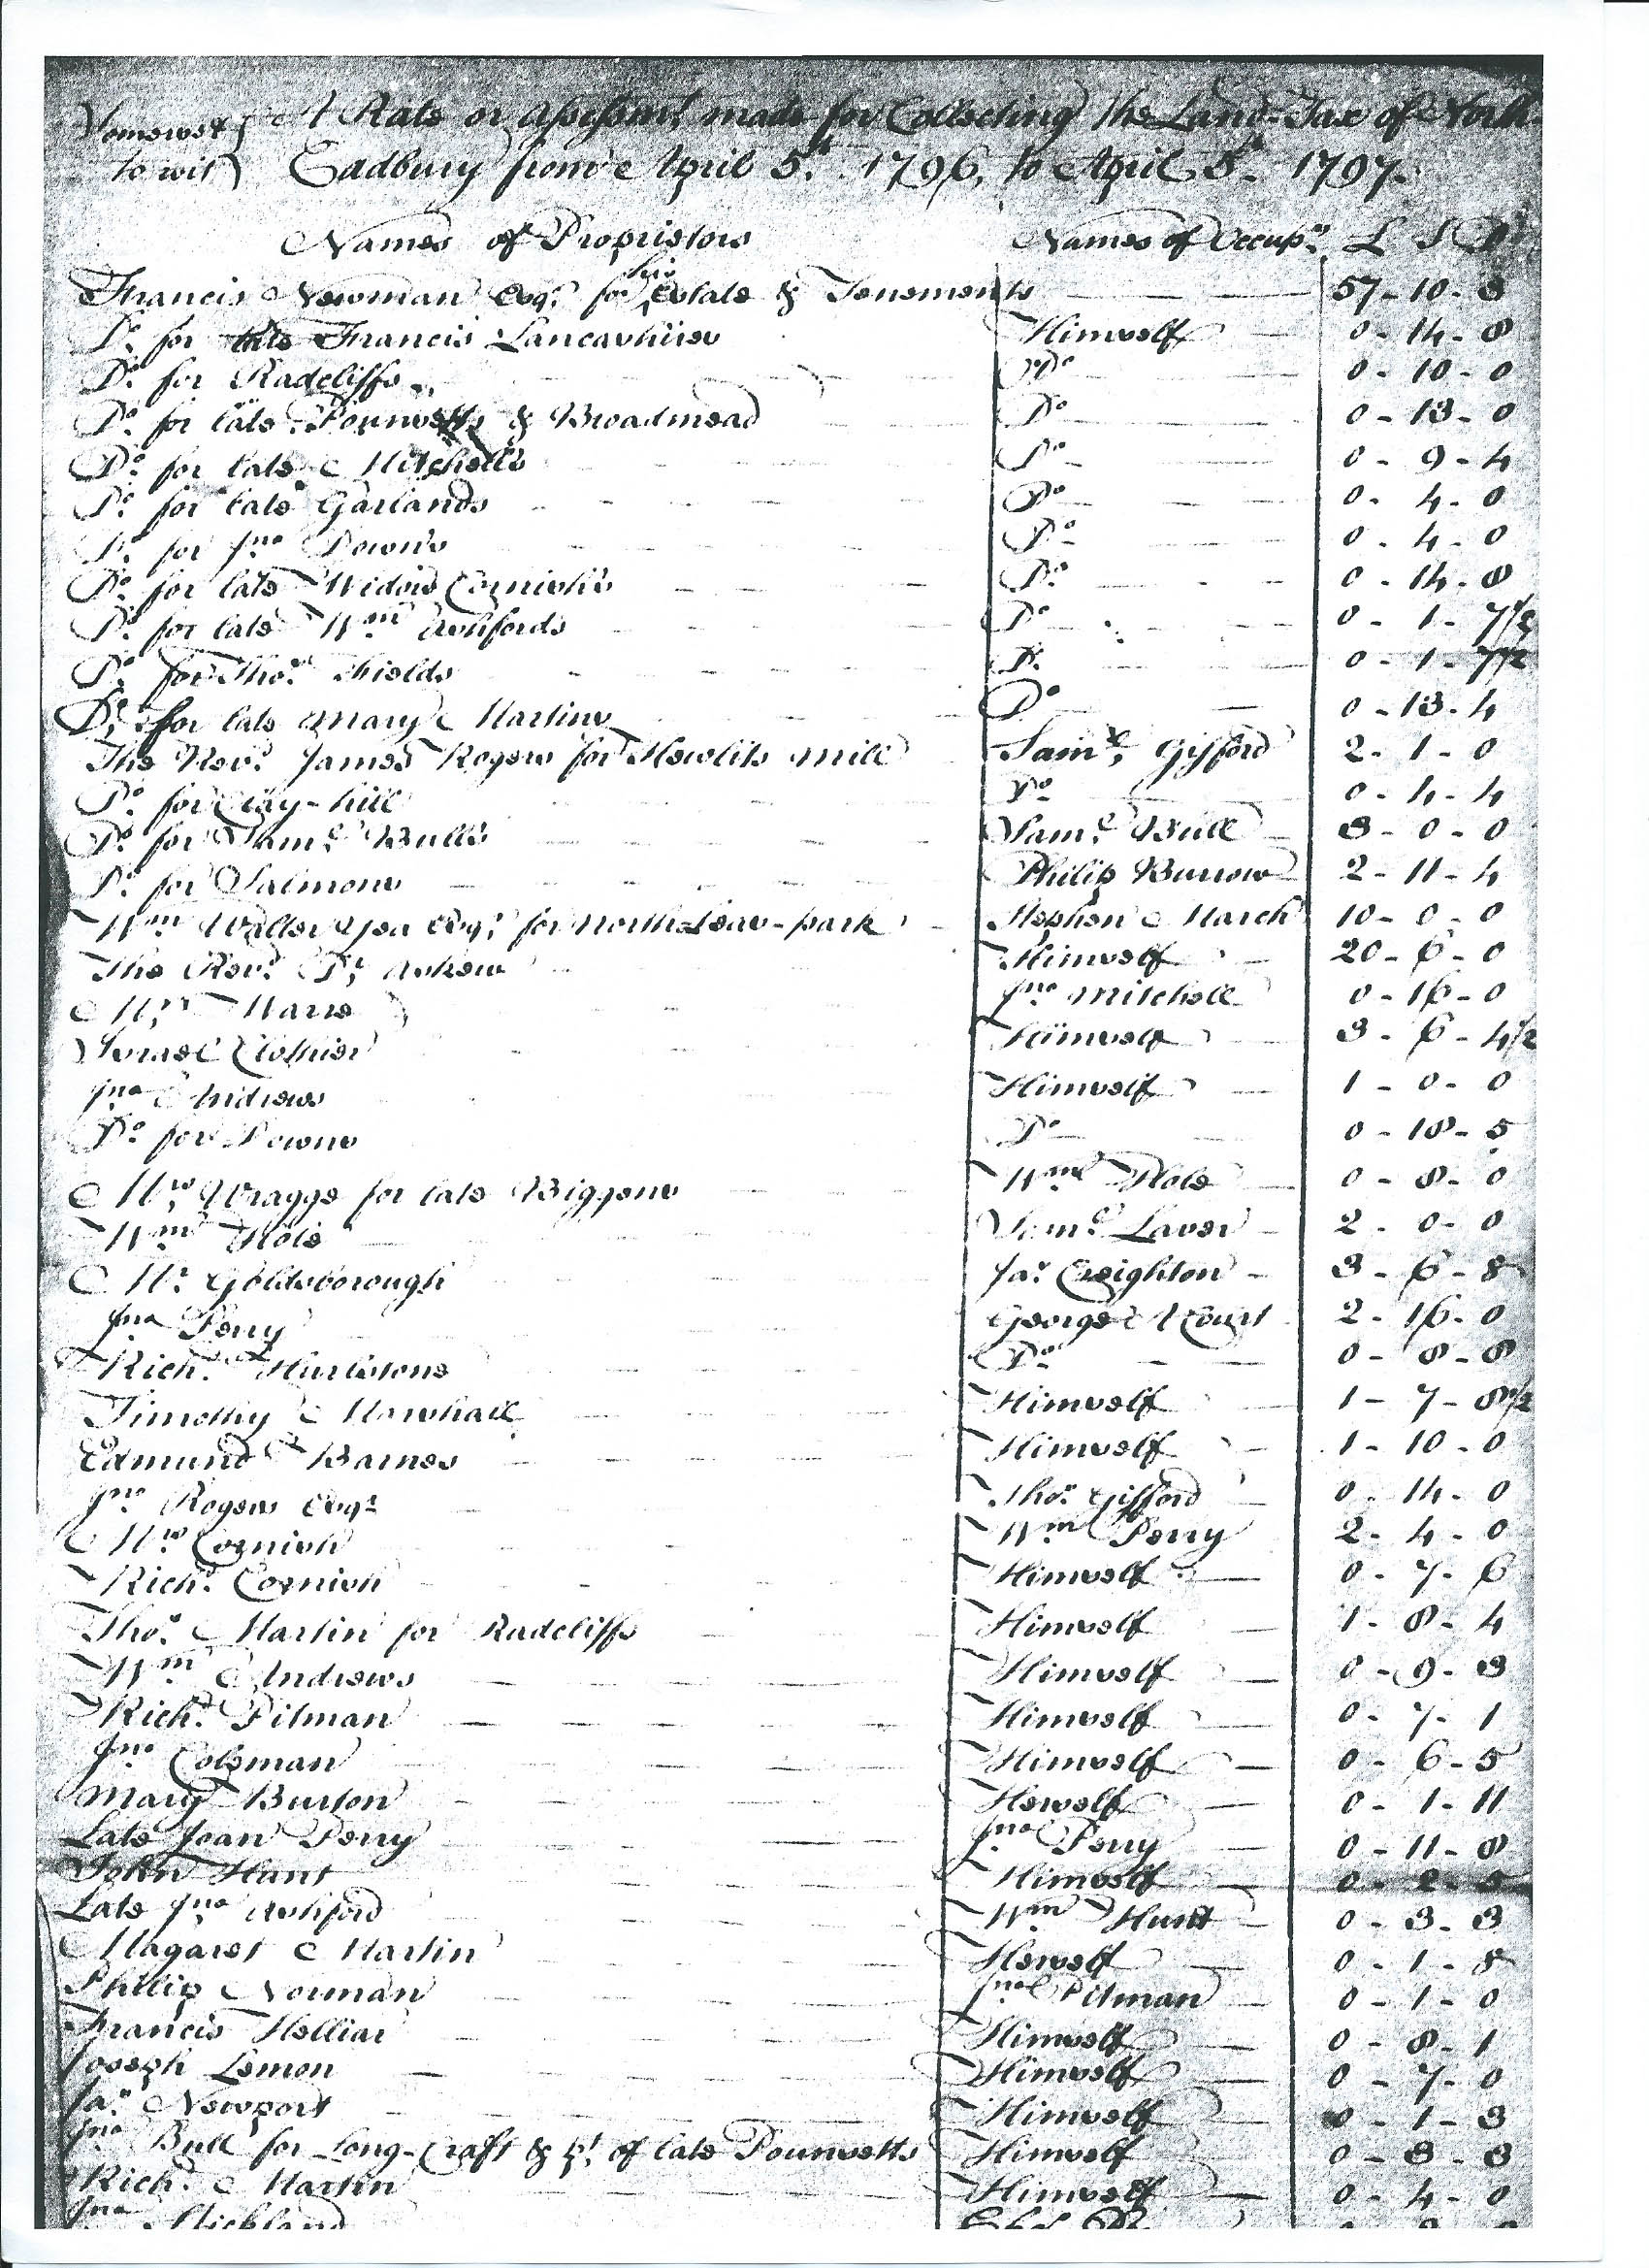 Somerset } A Rate or Assessmt. made for Collecting the Land-Tax of North
to wit } Cadbury from April 5th. 1796, to April 5th. 1797.
Names of Proprietors Names of Occuprs. L S D
Francis Newman Esqr. for his Estate & Tenements 57-10-8
Do. for late Francis Lancashires Himself 0-14-8
Do. for Radcliffs Do 0-10-0
Do. for late Pounsetts & Broadmead Do 0-13-0
Do. for late Mitchell's Do 0-9-4
Do. for late Garlands Do 0-4-0
Do. for Jno. Downs Do 0-4-0
Do. for late Widow Cornish's Do 0-14-8
Do. for late Wm. Ashfords Do 0-1-7½
Do. for Thos. Fields Do 0-1-7½
Do. for late Mary Martins Do 0-13-4
The Revd. James Rogers for Hewlits Mill Saml. Gifford 2-1-0
Do. for Clay-hill Do 0-4-4
Do. for Saml. Bulls Saml. Bull 3-0-0
Do. for Salmons Philip Burrow 2-11-4
Wm. Walter Yea Esqr. for North-Leas-park Stephen March 10-0-0
The Revd. Dr. Askew Himself 20-6-0
Mrs. Harre Jno. Mitchell 0-16-0
Israel Clothier Himself 3-6-4½
Jno. Andrews Himself 1-0-0
Do. for Downs Do 0-18-5
Mrs. Wragge for late Biggens Wm. Hole 0-8-0
Wm. Hole Saml. Laver 2-0-0
Mr. Goldsborough Jas. Creighton 3-6-8
Jno. Perry George A Court 2-16-0
Richd. Hurlstone Do 0-8-8
Timothy Marshall Himself 1-7-8½
Edmund Barnes Himself 1-10-0
Jno. Rogers Esqr. Thos. Gifford 0-14-0
Mrs. Cornish Wm. Perry 2-4-0
Richd. Cornish Himself 0-7-6
Thos. Martin for Radcliffs Himself 1-8-4
Wm. Andrews Himself 0-9-3
Richd. Pitman Himself 0-7-1
Jno. Coleman Himself 0-6-5
Mary Burton Herself 0-1-11
Late Joan Perry Jno. Perry 0-11-8
John Hunt Himself 0-2-5
Late Jno. Ashford Wm. Hunt 0-3-3
Magaret Martin Herself 0-1-8
Philip Norman Jno. Pitman 0-1-0
Francis Helliar Himself 0-8-1
Joseph Lemon Himself 0-7-0
Jas. Newport Himself 0-1-3
Jno. Bull for Long-Craft & pt. of late Pounsetts Himself 0-8-3
Richd. Martin Himself 0-4-0
Jno.